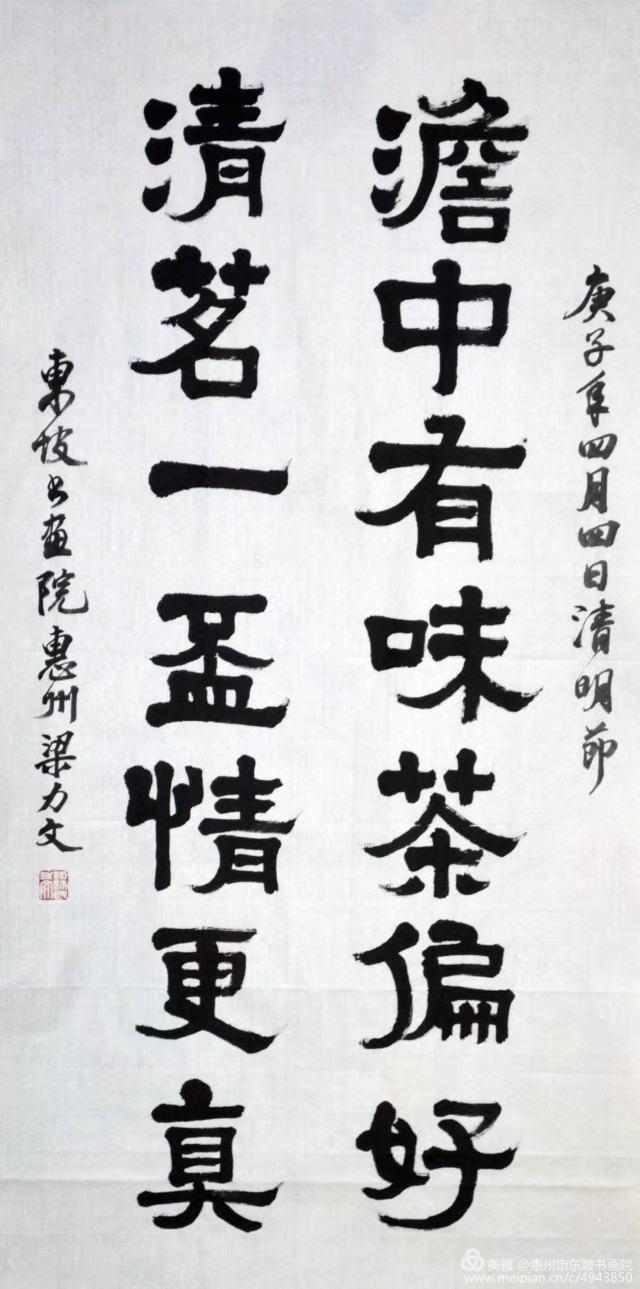 庚子年四月四日清明節
澹中有味茶偏好
清茗一盃情更真
東坡書畫院惠州梁力文
美篇 @惠州市东坡书画院
www.meipian.cn/c/4943850